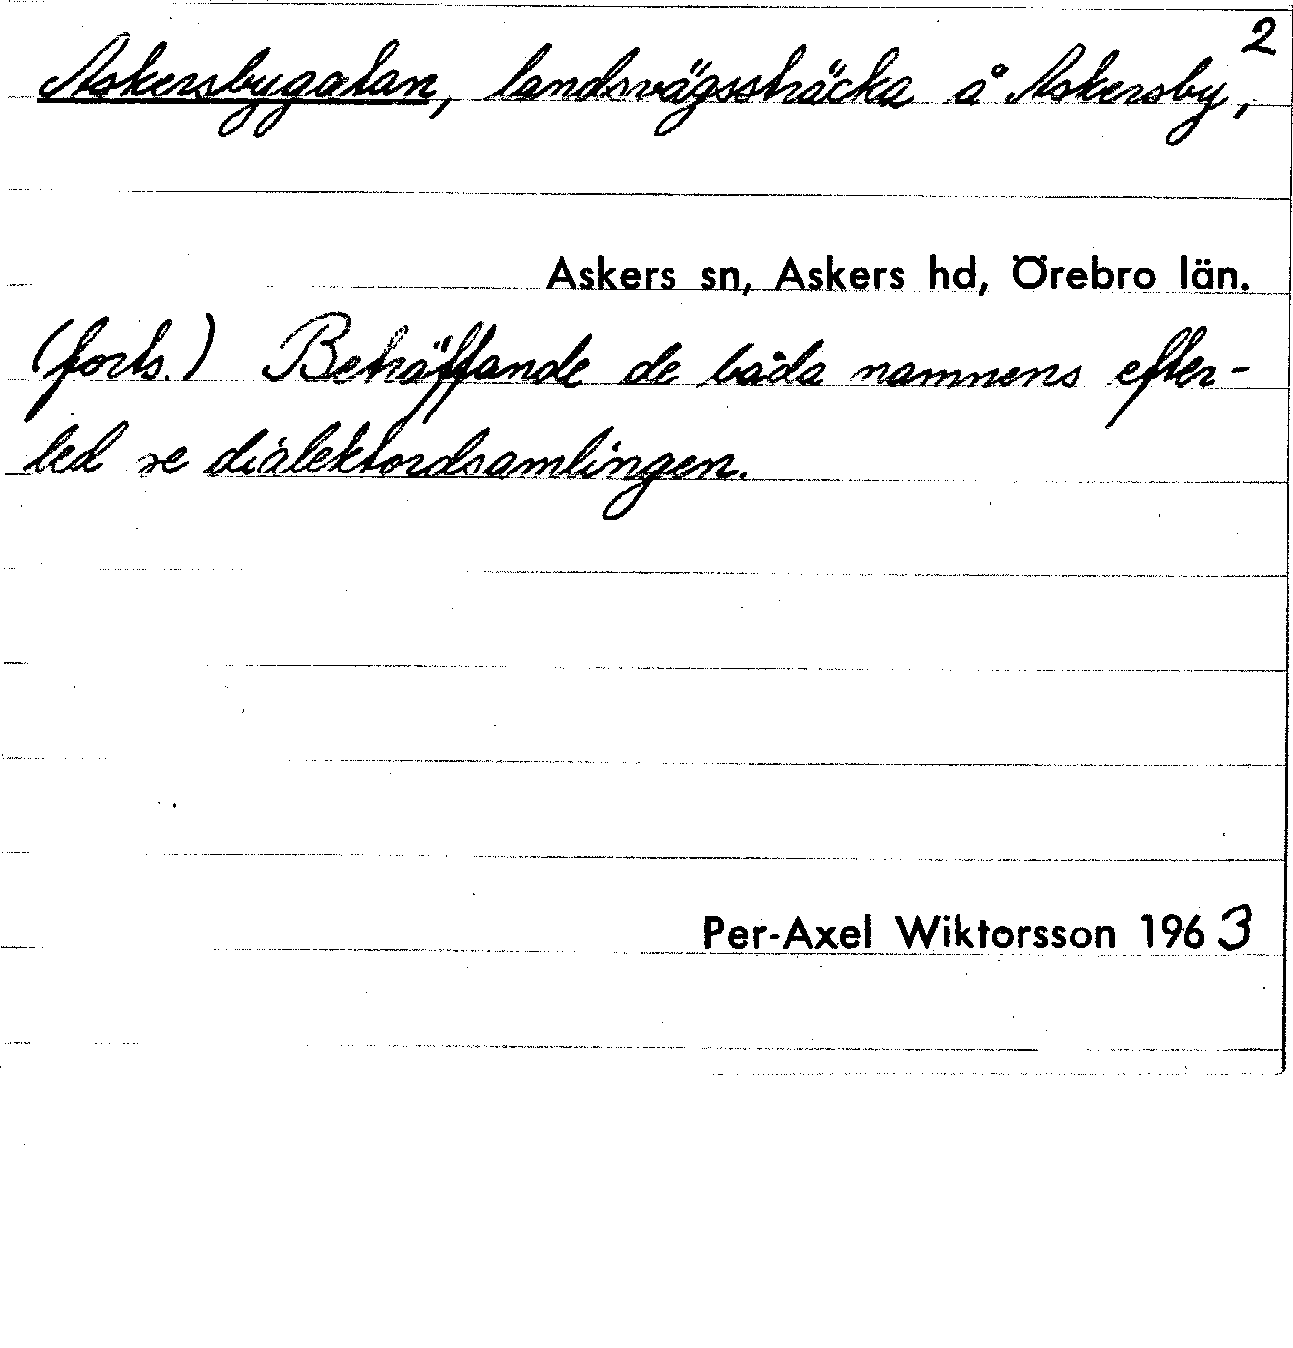 2
Askersbygatan, landsvägssträcka å Askersby,
Askers sn, Askers hd, Örebro län.
(forts.) Beträffande de båda namnens efter-
led se dialektordsamlingen.
Per-Axel Wiktorsson 1963